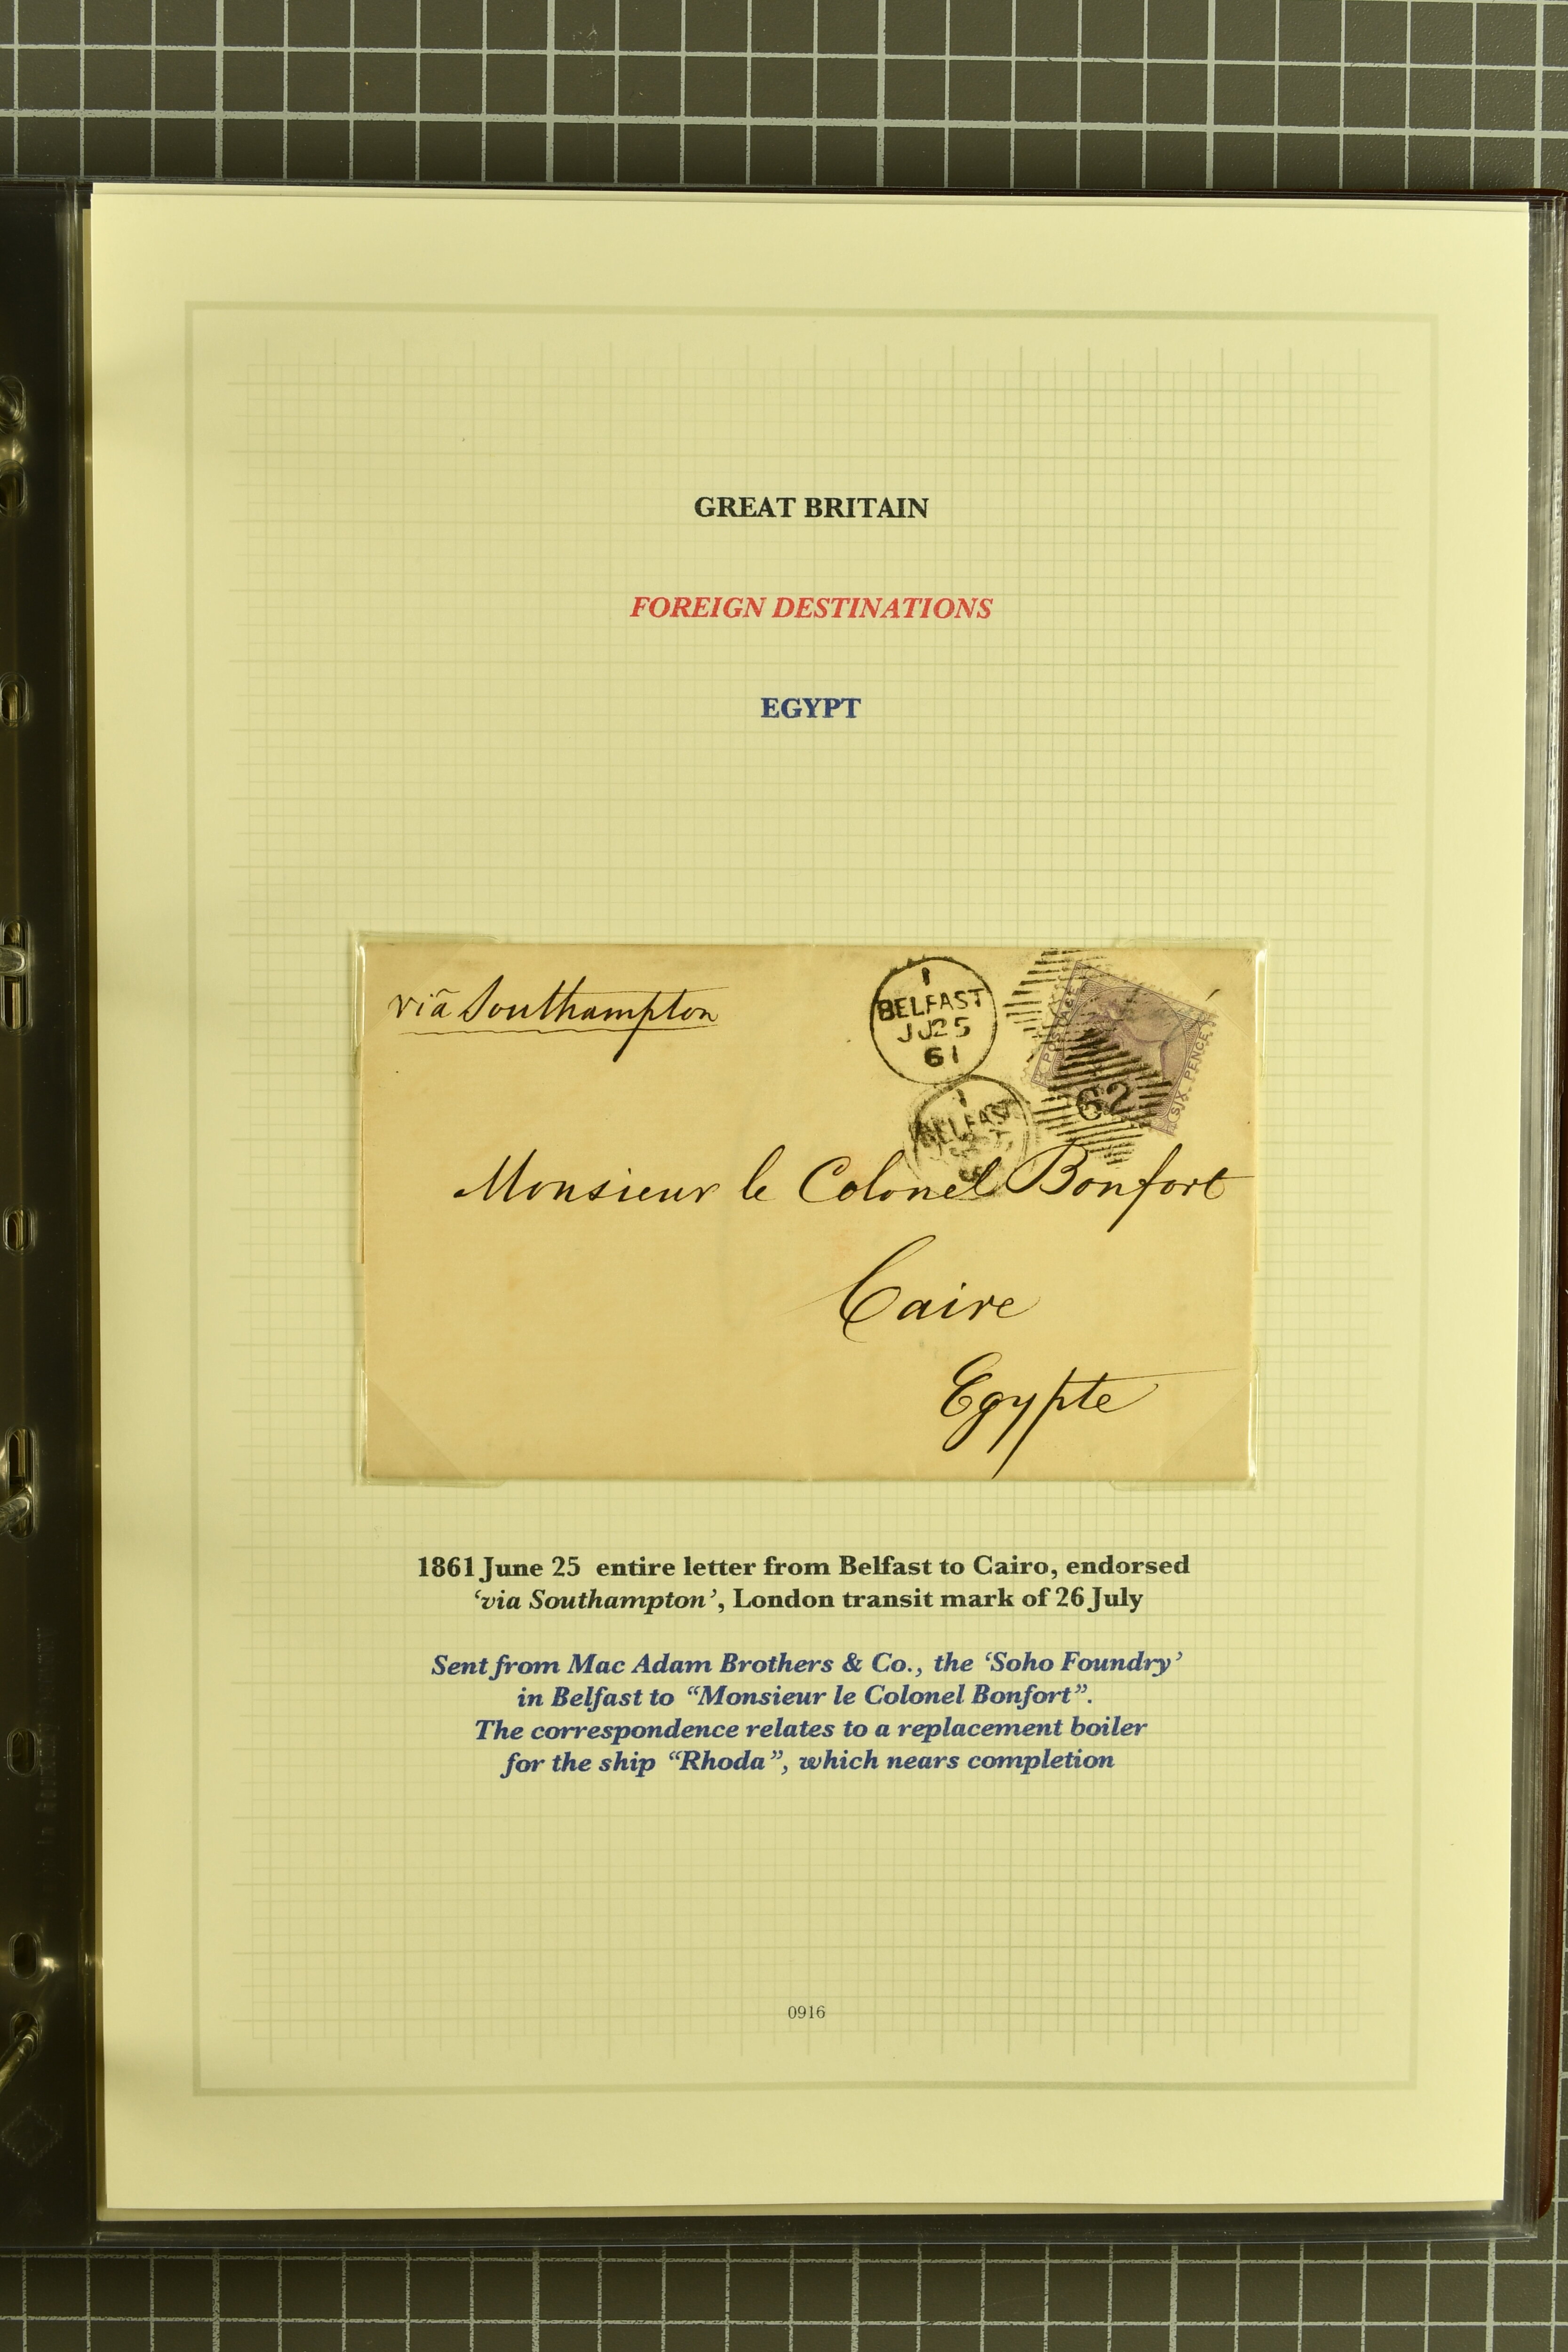 GREAT BRITAIN
FOREIGN DESTINATIONS
EGYPT
viã Southampton
1
BELFAST
JU25
61
POSTAGE
SIX PENCE
62
1
BELFAST
Monsieur le Colonel Bonfort
Caire
Egypte
1861 June 25 entire letter from Belfast to Cairo, endorsed
‘via Southampton’, London transit mark of 26 July
Sent from Mac Adam Brothers & Co., the ‘Soho Foundry’
in Belfast to “Monsieur le Colonel Bonfort”.
The correspondence relates to a replacement boiler
for the ship “Rhoda”, which nears completion
0916